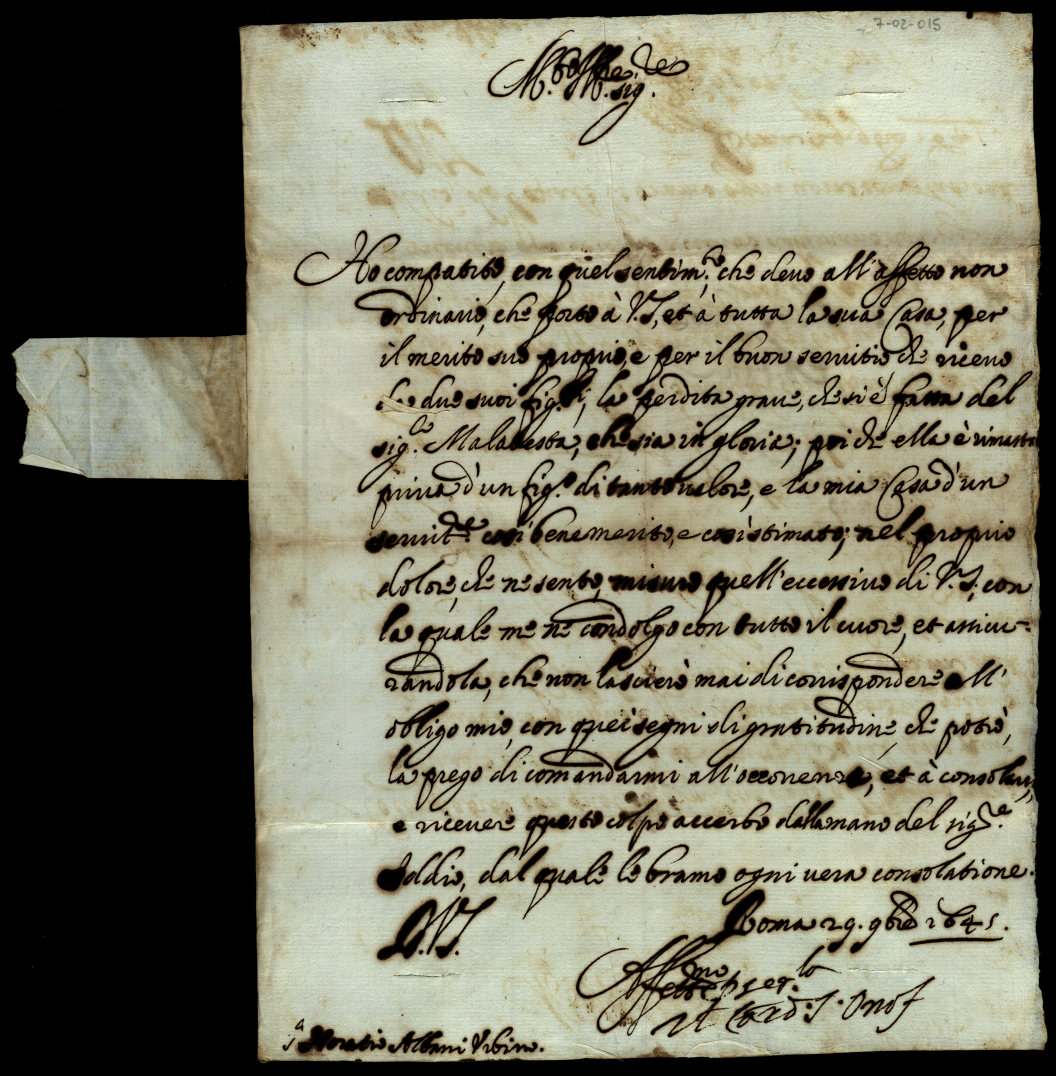 7-02-015
M.to Ill.re Sig.re
Ho compatito, con quel sentim.to, che devo all'affetto non
ordinario, che porto à V.S., et à tutta la sua Casa, per
il merito suo proprio, e per il buon servitio che ricevo
da due suoi fig.li, la perdita grave, che si è fatta del
sig.re Malatesta, che sia in gloria; poi che ella è rimasta
priva d'un fig.o di tanto valore, e la mia Casa d'un
servit.re così benemerito, e così stimato; nel proprio
dolore, che ne sento, misuro quell'eccessivo di V.S., con
la quale me ne condolgo con tutto il cuore, et assicu-
randola, che non lascierò mai di corrispondere all'
obligo mio, con quei segni di gratitudine, che potrò,
la prego di comandarmi all'occorrenze, et à consolarsi,
e ricevere questo colpo accerbo dalla mano del sig.re
Iddio, dal quale le bramo ogni vera consolatione.
D.V.S.
Roma 29. 9bre 1645.
Aff.mo per ser.lo
Il Card. S. Onof
S.a Horatio Albani Urbino.